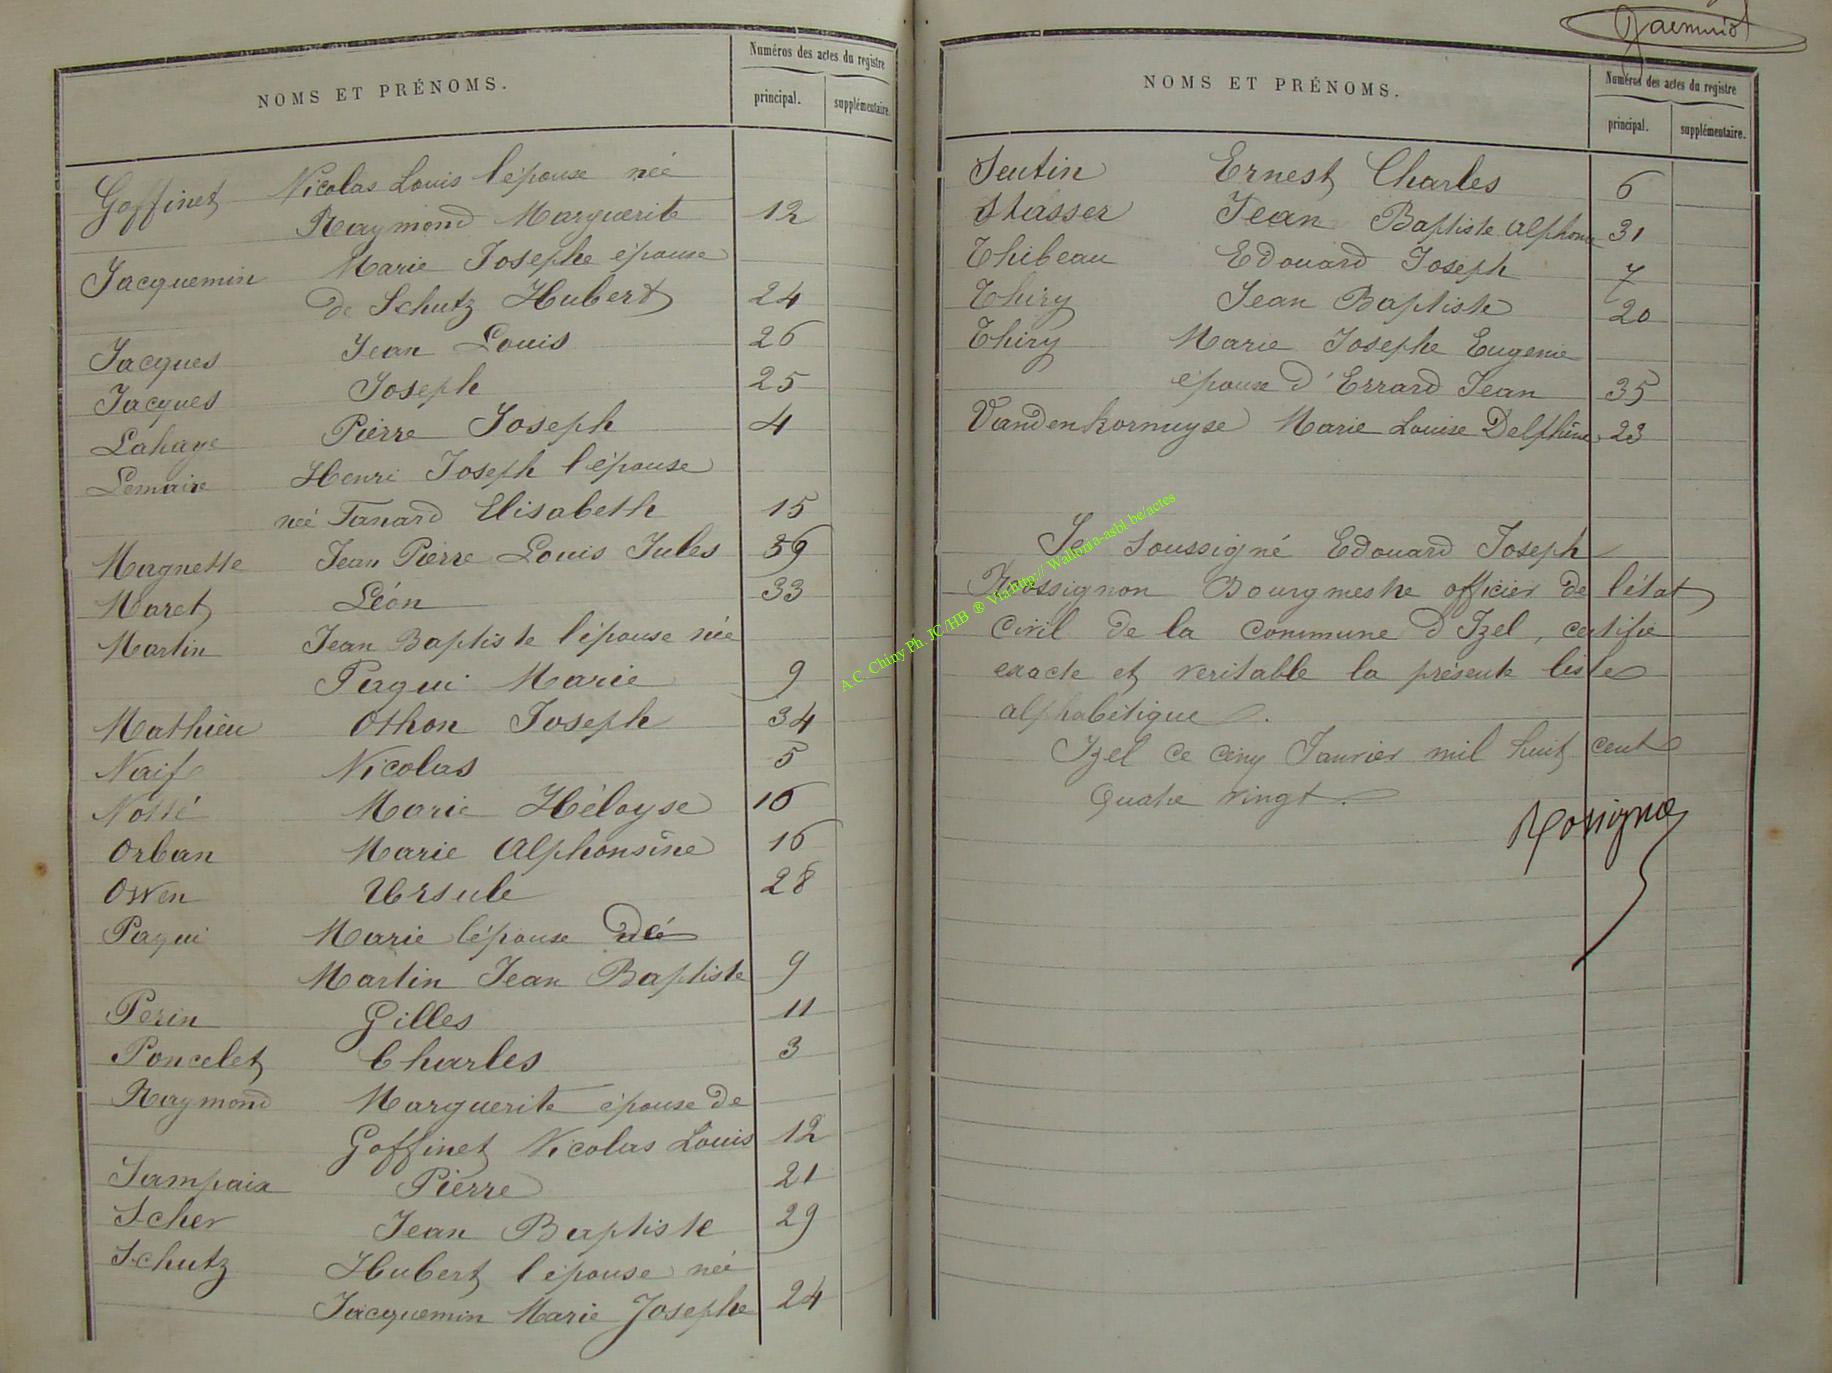 NOMS ET PRÉNOMS.
Numéros des actes du registre
principal.
supplémentaire.
Goffinet Nicolas Louis l'épouse née
Raymond Marguerite 12
Jacquemin Marie Josephe épouse
de Schutz Hubert 24
Jacques Jean Louis 26
Jacques Joseph 25
Lahaye Pierre Joseph 4
Lemaire Henri Joseph l'épouse
née Fanard Elisabeth 15
Magnette Jean Pierre Louis Jules 39
Maret Léon 33
Martin Jean Baptiste l'épouse née
Paqui Marie 9
Mathieu Othon Joseph 34
Naif Nicolas 5
Notté Marie Héloyse 10
Orban Marie Alphonsine 16
Owen Ursule 28
Paqui Marie l'épouse de
Martin Jean Baptiste 9
Perin Gilles 11
Poncelet Charles 3
Raymond Marguerite épouse de
Goffinet Nicolas Louis 12
Sampaix Pierre 21
Scher Jean Baptiste 29
Schutz Hubert l'épouse née
Jacquemin Marie Josephe 24
NOMS ET PRÉNOMS.
Numéros des actes du registre
principal.
supplémentaire.
Seutin Ernest Charles 6
Stasser Jean Baptiste Alphonse 31
Thibeau Edouard Joseph 7
Thiry Jean Baptiste 20
Thiry Marie Josephe Eugenie
épouse d'Errard Jean 35
Vandenkornuyse Marie Louise Delphine 23
Je soussigné Edouard Joseph
Rossignon Bourgmestre officier de l'état
Civil de la Commune d'Izel, certifie
exacte et veritable la présente liste
alphabétique.
Izel ce cinq Janvier mil huit cent
Quatre vingt.
Rossignon
A.C. Chiny Ph. JC /HB ® Via http:// Wallonia-asbl.be/actes